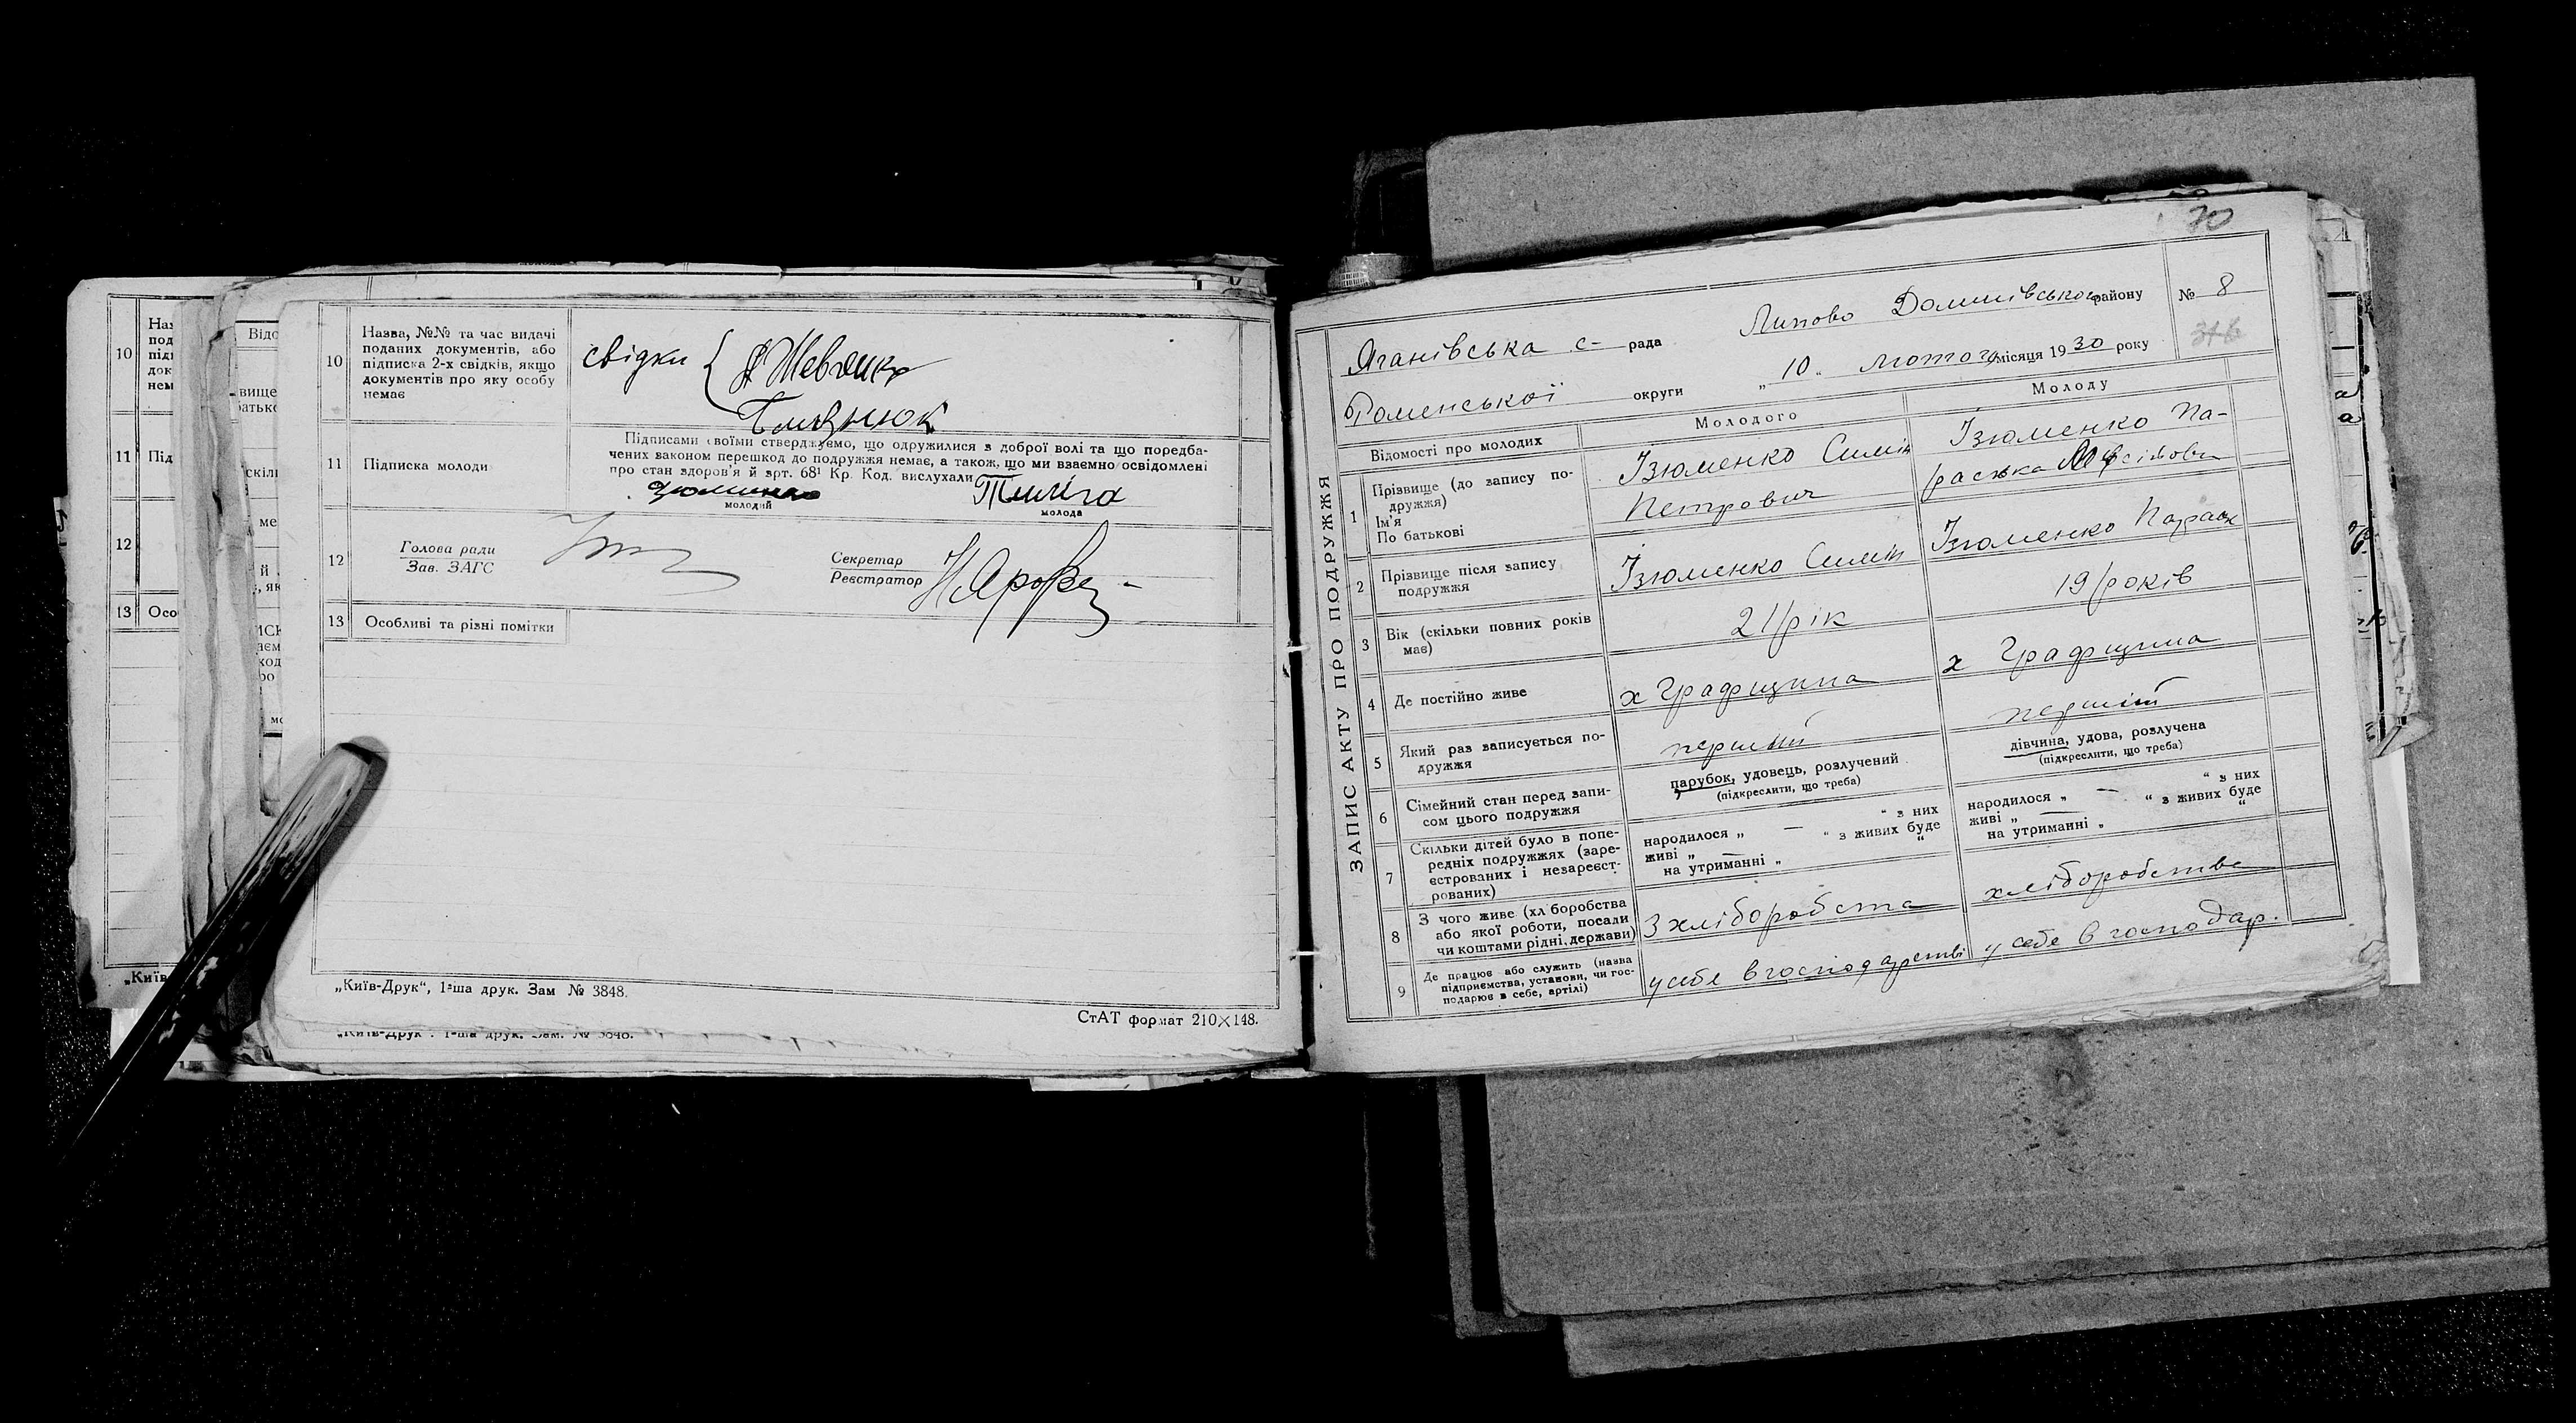 10
Назва, №№ та час видачі
поданих документів, або
підписка 2-х свідків, якщо
документів про яку особу
немає
свідки
11
Підписка молоди
Підписами своїми стверджуємо, що одружилися з доброї волі та що передба-
чених законом перешкод до подружжя немає, а також, що ми взаємно освідомлені
про стан здоров'я й арт. 68¹ Кр. Код. вислухали
молодий
молода
12
Голова ради
Зав. ЗАГС
Секретар
Реєстратор
13
Особливі та різні помітки
„Київ-Друк“, 1-ша друк. Зам № 3848.
СтАТ формат 210×148.
„Київ-Друк“. 1-ша друк. Зам. № 3848.
10
11
Під
12
13
Осо
„Київ
70
ЗАПИС АКТУ ПРО ПОДРУЖЖЯ
Яганівська с- рада Липово Долинівського району
№ 8
Роменської округи „10“ лютого місяця 1930 року
Відомості про молодих
Молодого
Молоду
1
Прізвище (до запису по-
дружжя)
Ім'я
По батькові
Ізюменко
Петрович
Ізюменко Па-
раська
2
Прізвище після запису
подружжя
Ізюменко
Ізюменко
3
Вік (скільки повних років
має)
21 рік
19 років
4
Де постійно живе
х Графщина
х Графщина
5
Який раз записується по-
дружжя
перший
перший
6
Сімейний стан перед запи-
сом цього подружжя
парубок, удовець, розлучений
(підкреслити, що треба)
дівчина, удова, розлучена
(підкреслити, що треба)
7
Скільки дітей було в попе-
редніх подружжях (заре-
єстрованих і незареєст-
рованих)
народилося „ — “ з них
живі „ — “ з живих буде
на утриманні „ “
народилося „ — “ з них
живі „ — “ з живих буде
на утриманні „ “
8
З чого живе (хліборобства
або якої роботи, посади
чи коштами рідні, держави)
З хліборобста
хліборобстве
9
Де працює або служить (назва
підприємства, установи, чи гос-
подарює в себе, артілі)
у себе в господарстві
у себе в господар.